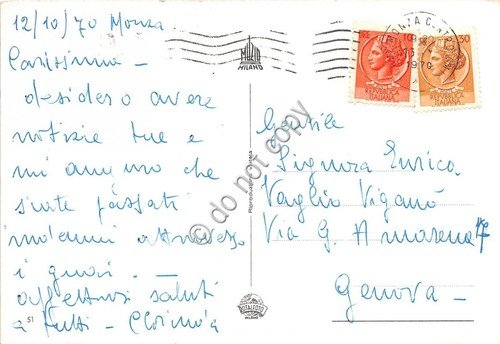 12/10/70 Monza
Carissima -
desidero avere
notizie tue e
mi auguro che
siate passati
attraverso
i guai. -
affettuosi saluti
a tutti -
MILANO
MONZA
1970
50
REPUBBLICA
ITALIANA
Gentile
Signora Enrica
Vaglio Viganò
Via G. Amarena
Genova -
do not copy
TOTALFOTO
MILANO
51